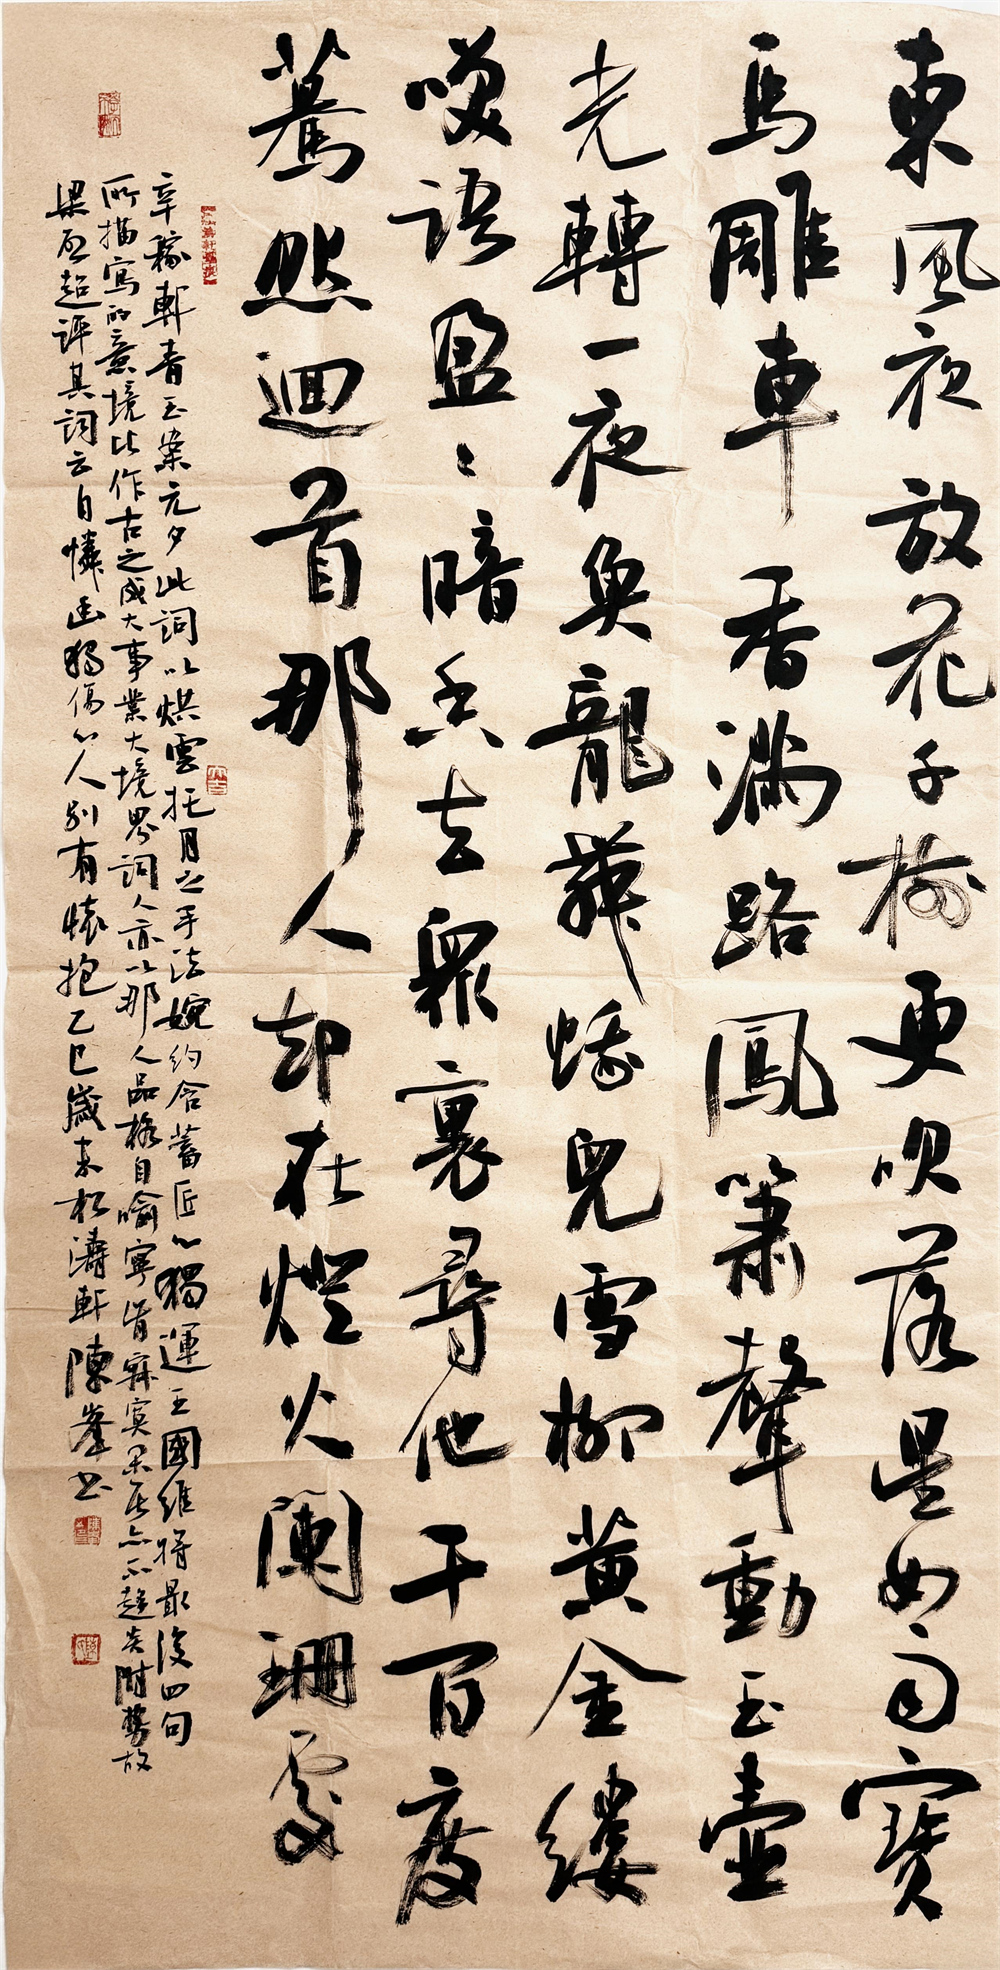 東風夜放花千樹更吹落星如雨寶
馬雕車香滿路鳳簫聲動玉壺
光轉一夜魚龍舞蛾兒雪柳黃金縷
笑語盈〻暗香去眾裏尋他千百度
驀然迴首那人却在燈火闌珊處
辛稼軒青玉案元夕此詞以烘雲托月之手法婉約含蓄匠心獨運王國維將最後四句
所描寫的意境比作古之成大事業大境界詞人亦以那人品格自喻寧肯寂寞居亦不趨炎附勢故
梁啟超評其詞云自憐幽獨傷心人別有懷抱乙巳歲末松濤軒陳峯書